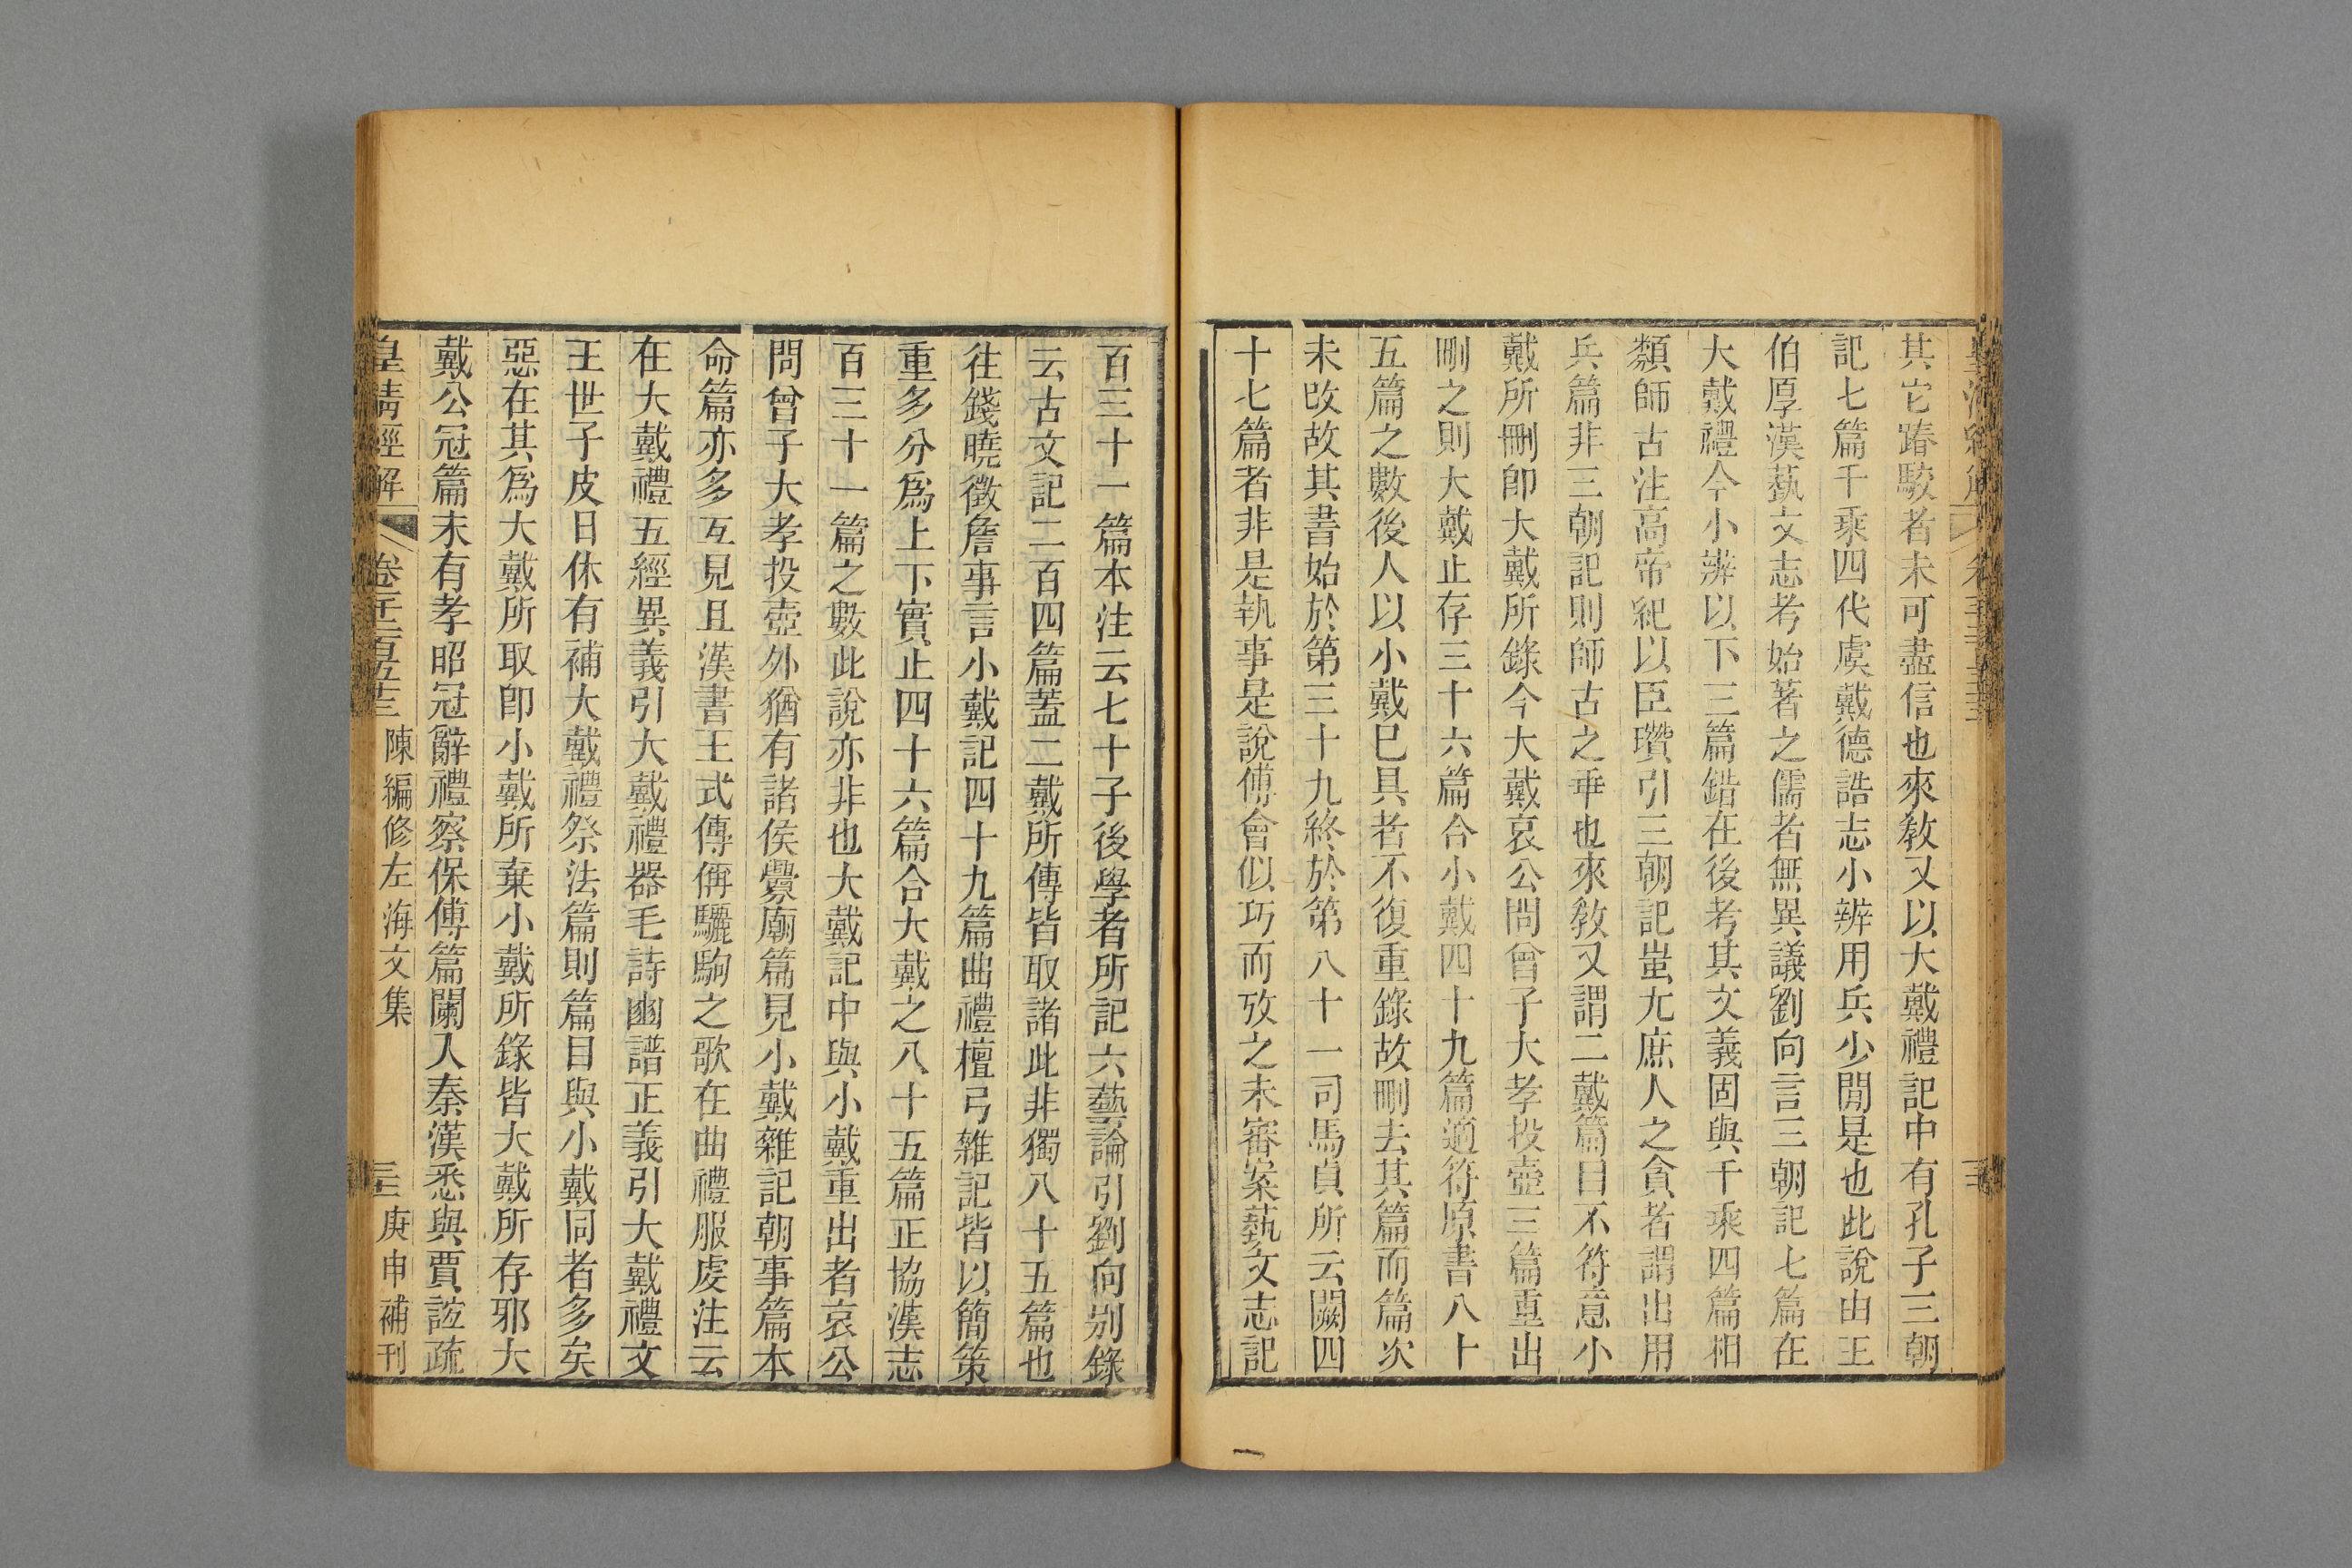 其它踳駮者未可盡信也來敎又以大戴禮記中有孔子三朝
記七篇千乘四代虞戴德誥志小辨用兵少閒是也此說由王
伯厚漢藝文志考始著之儒者無異議劉向言三朝記七篇在
大戴禮今小辨以下三篇錯在後考其文義固與千乘四篇相
類師古注高帝紀以臣瓚引三朝記蚩尤庶人之貪者謂出用
兵篇非三朝記則師古之乖也來敎又謂二戴篇目不符意小
戴所刪卽大戴所錄今大戴哀公問曾子大孝投壺三篇重出
刪之則大戴止存三十六篇合小戴四十九篇適符原書八十
五篇之數後人以小戴已具者不復重錄故刪去其篇而篇次
未改故其書始於第三十九終於第八十一司馬貞所云闕四
十七篇者非是執事是說傅會似巧而攷之未審案藝文志記
百三十一篇本注云七十子後學者所記六藝論引劉向别錄
云古文記二百四篇蓋二戴所傳皆取諸此非獨八十五篇也
往錢曉徵詹事言小戴記四十九篇曲禮檀弓雜記皆以簡策
重多分爲上下實止四十六篇合大戴之八十五篇正協漢志
百三十一篇之數此說亦非也大戴記中與小戴重出者哀公
問曾子大孝投壺外猶有諸侯釁廟篇見小戴雜記朝事篇本
命篇亦多互見且漢書王式傳偁驪駒之歌在曲禮服虔注云
在大戴禮五經異義引大戴禮器毛詩豳譜正義引大戴禮文
王世子皮日休有補大戴禮祭法篇則篇目與小戴同者多矣
惡在其爲大戴所取卽小戴所棄小戴所錄皆大戴所存邪大
戴公冠篇末有孝昭冠辭禮察保傅篇闌入秦漢悉與賈誼疏
皇清經解 卷千二百五十三 陳編修左海文集 三十二 庚申補刊